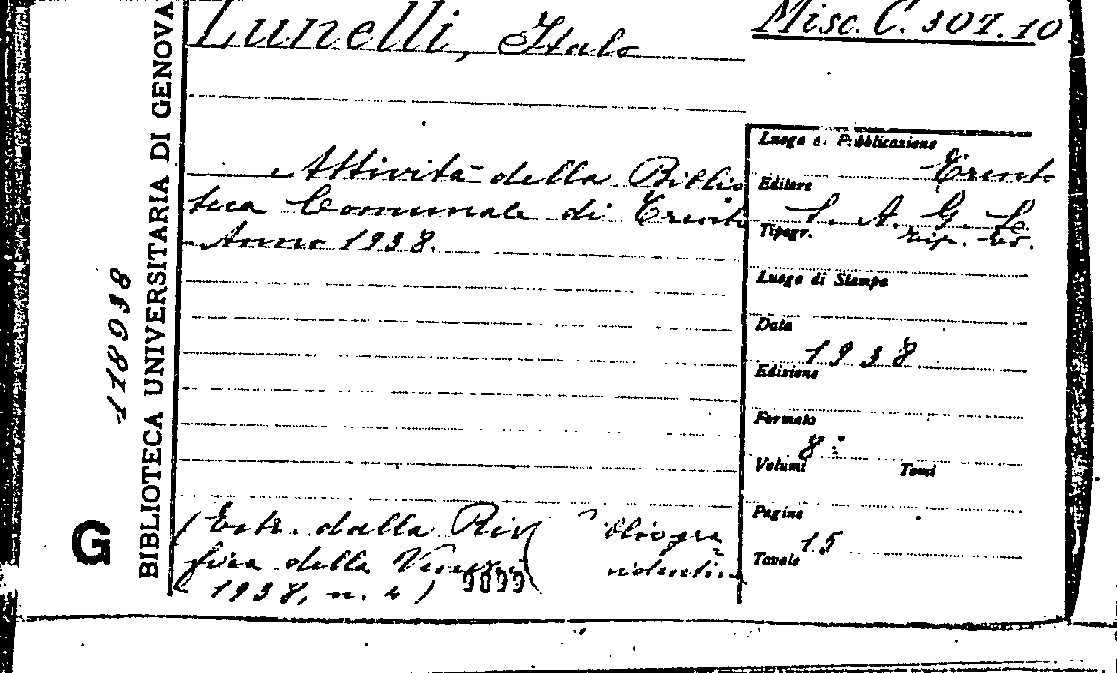 Lunelli, Italo
Misc. C. 307.10
Attività della Biblio
teca Comunale di Trento
Anno 1938.
(Estr. dalla Riv
fica della Venezia
1938, n. 4)
9099
Luogo di Pubblicazione
Trento
Editore
S. A. G. E.
Tipogr.
Luogo di Stampa
Data
1938
Edizione
Formato
8°
Volumi Tomi
Pagine
15
Tavole
BIBLIOTECA UNIVERSITARIA DI GENOVA
G